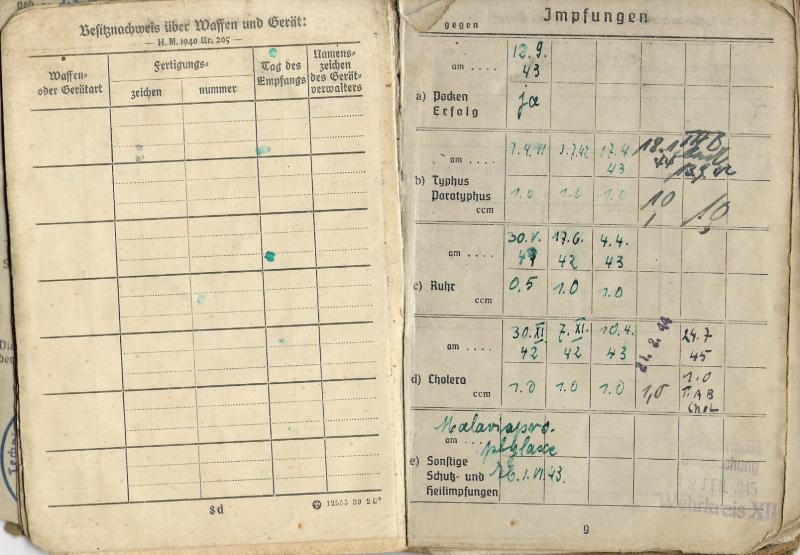 Besitznachweis über Waffen und Gerät:
— H. M. 1940 Nr. 205 —
Waffen-
oder Gerätart
Fertigungs-
zeichen
nummer
Tag des
Empfangs
Namens-
zeichen
des Gerät-
verwalters
8d
12555 39 2 C
gegen
Impfungen
12.9.
am ....
43
a) Pocken
Erfolg
ja
am ....
17.4
43
18.1
44
b) Typhus
Paratyphus
ccm
1.0 1.0 1.0 10 10
30.V. 17.6. 4.4.
am ....
42 43
c) Ruhr
ccm
0,5 1.0 1.0
30.XI 7.XI. 10.4. 24.7
am ....
42 42 43 45
d) Cholera
ccm
1.0 1.0 1.0 1,0 1.0
T.A B
Chol
Malariapro.
am ....
e) Sonstige
Schutz- und
Heilimpfungen
1.VI.43.
Untersuchung
Wehrkreis XII
9